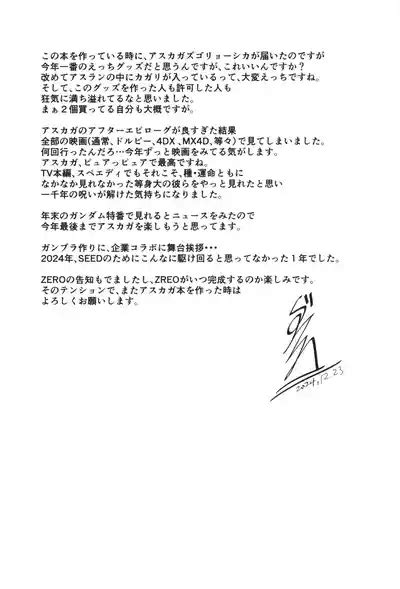 この本を作っている時に、アスカガズゴリョーシカが届いたのですが
今年一番のえっちグッズだと思うんですが、これいいんですか?
改めてアスランの中にカガリが入っているって、大変えっちですね。
そして、このグッズを作った人も許可した人も
狂気に満ち溢れてるなと思いました。
まぁ2個買ってる自分も大概ですが。
アスカガのアフターエピローグが良すぎた結果
全部の映画(通常、ドルビー、4DX、MX4D、等々)で見てしまいました。
何回行ったんだろ…今年ずっと映画をみてる気がします。
アスカガ、ピュアっピュアで最高ですね。
TV本編、スペエディでもそれこそ、種・運命ともに
なかなか見れなかった等身大の彼らをやっと見れたと思い
一千年の呪いが解けた気持ちになりました。
年末のガンダム特番で見れるとニュースをみたので
今年最後までアスカガを楽しもうと思ってます。
ガンプラ作りに、企業コラボに舞台挨拶・・・
2024年、SEEDのためにこんなに駆け回ると思ってなかった1年でした。
ZEROの告知もでましたし、ZREOがいつ完成するのか楽しみです。
そのテンションで、またアスカガ本を作った時は
よろしくお願いします。
2024.12.23